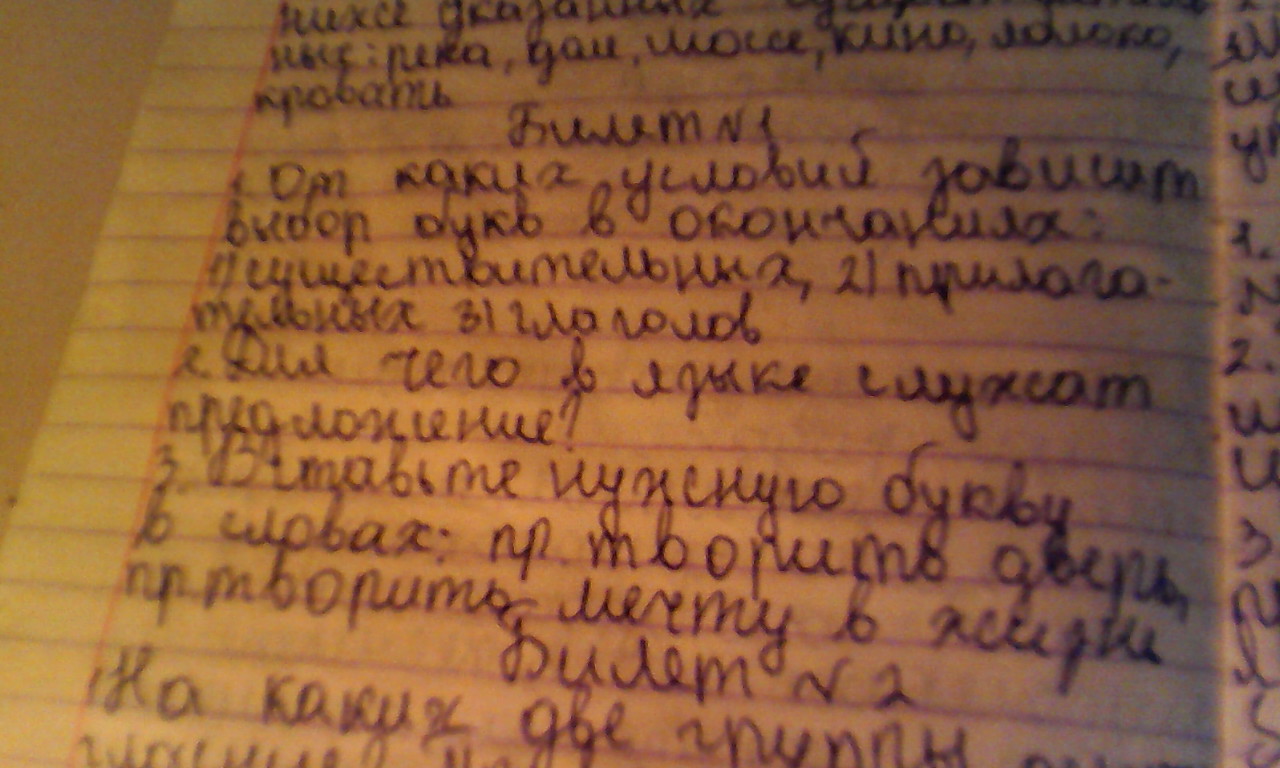 ниже указанных
ные: река, дом, шоссе, кино, яблоко,
кровать
Билет №1
1. От каких условий зависит
выбор букв в окончаниях:
1) существительных, 2) прилага-
тельных 3) глаголов
2. Для чего в языке служат
предложение?
3. Вставьте нужную букву
в словах: пр.творить дверь,
пр.творить мечту в жизнь
Билет №2
1. На каких две группы
1.
2.
3